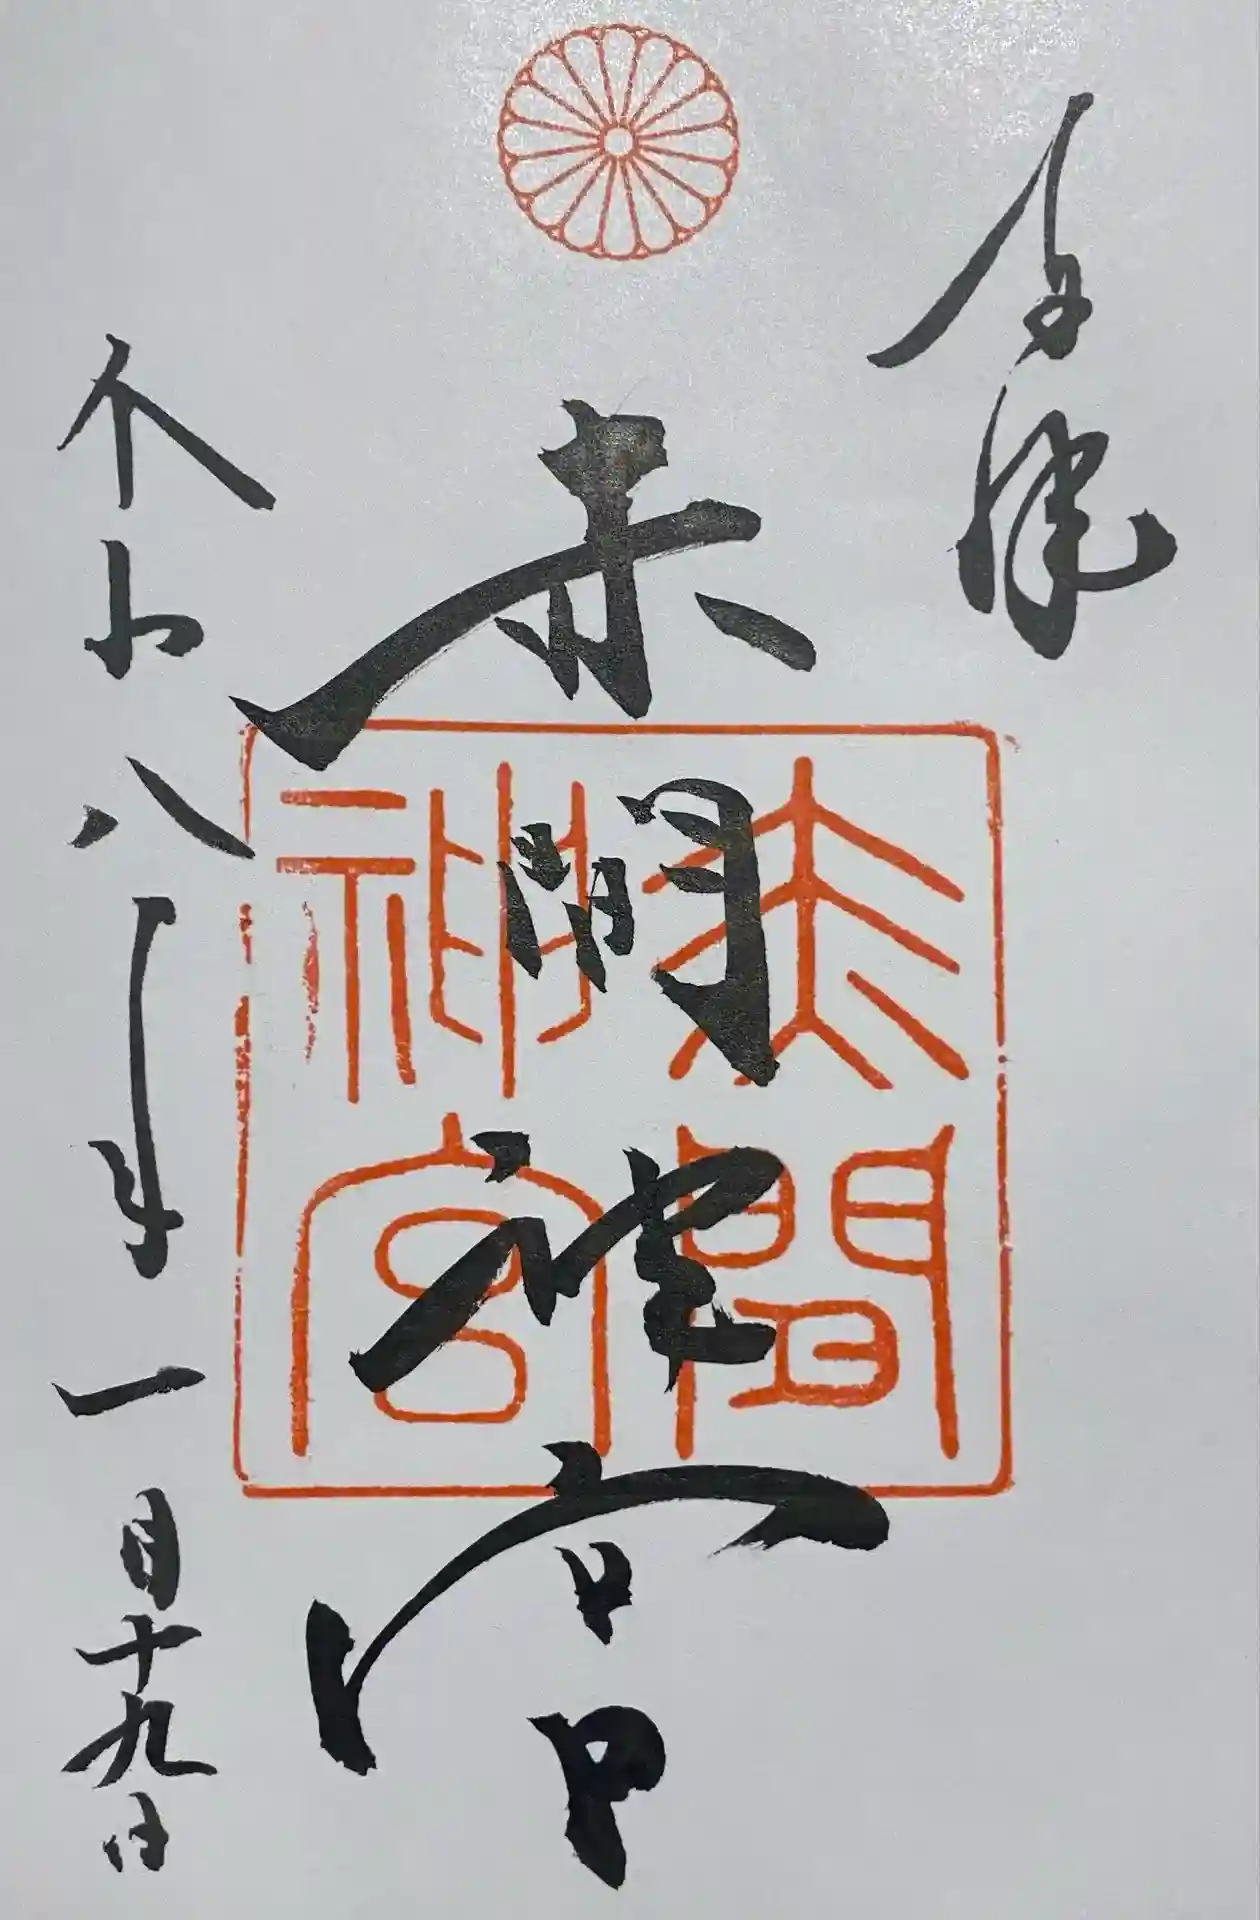 奉拝
赤間神宮
赤間神宮
令和八年一月十九日